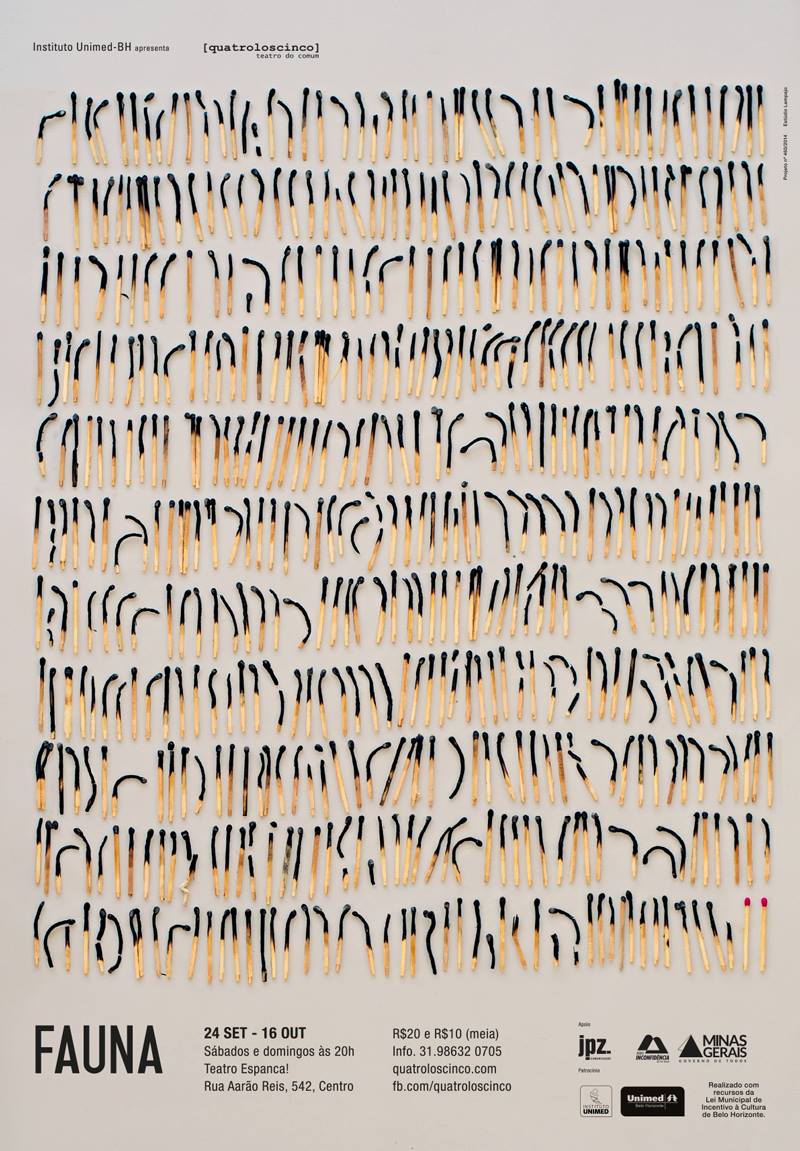 Instituto Unimed-BH apresenta
[quatroloscinco]
teatro do comum
Projeto nº 460/2014 Estúdio Lampejo
FAUNA
24 SET - 16 OUT
Sábados e domingos às 20h
Teatro Espanca!
Rua Aarão Reis, 542, Centro
R$20 e R$10 (meia)
Info. 31.98632 0705
quatroloscinco.com
fb.com/quatroloscinco
Apoio
jpz.
INCONFIDÊNCIA
MINAS
GERAIS
GOVERNO DE TODOS
Patrocínio
INSTITUTO
UNIMED
Unimed
Belo Horizonte
Realizado com
recursos da
Lei Municipal de
Incentivo à Cultura
de Belo Horizonte.